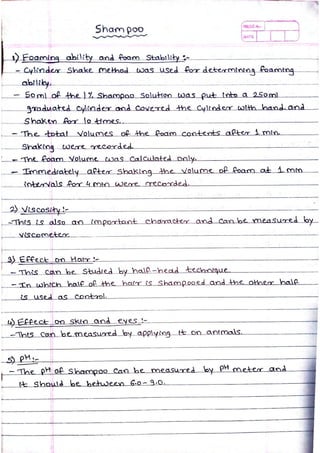 Shampoo
PAGE No.
DATE
1) Foaming ability and foam Stability :-
- Cylinder Shake method was used for determining foaming
ability.
- 50ml of the 1% Shampoo Solution was put into a 250ml
graduated cylinder and covered the cylinder with hand and
Shaken for 10 times.
- The total Volumes of the foam contents after 1 min
Shaking were recorded
- The foam Volume was Calculated only.
- Immediately after Shaking the Volume of foam at 1 min
intervals for 4 min were recorded.
2) Viscosity :-
- This is also an important character and can be measured by
viscometer.
3) Effect on Hair :-
- This can be Studied by half-head technique
- In which half of the hair is Shampooed and the other half
is used as control.
4) Effect on skin and eyes :-
- This can be measured by applying it on animals.
5) PH :-
- The PH of Shampoo can be measured by PH meter and
it should be between 6.0 - 9.0.